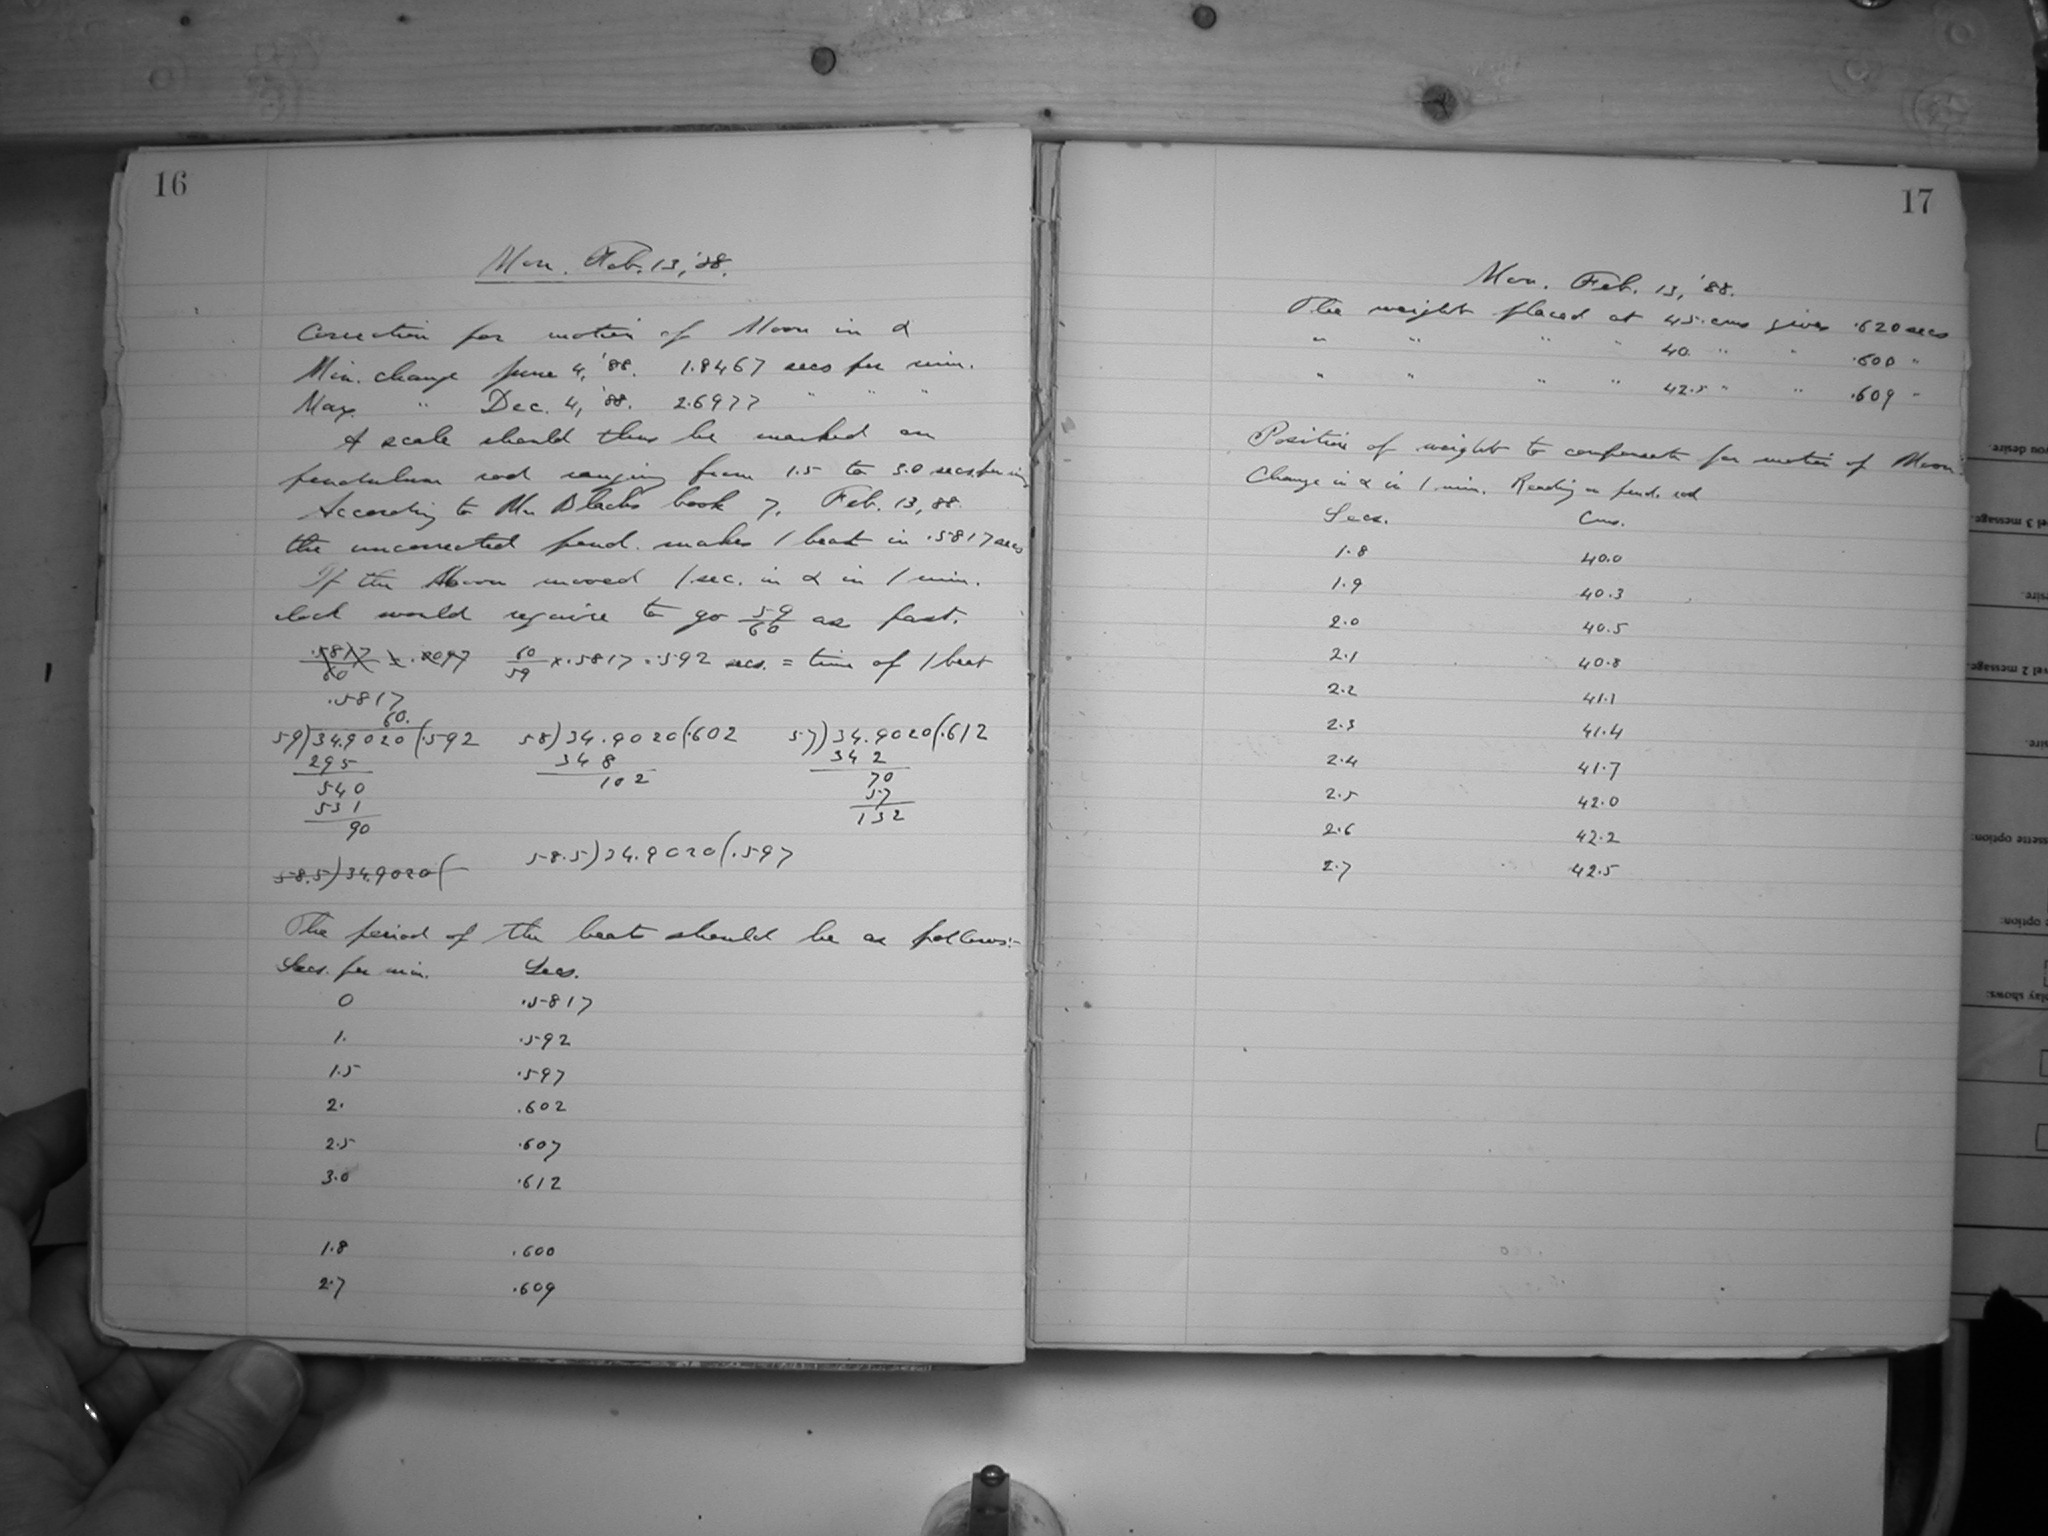 16
Mon. Feb. 13, '88.
Correction for motion of Moon in α
Min. change June 4, '88. 1.8467 secs per min.
Max. " Dec. 4, '88. 2.6977 " " "
A scale should thus be marked on
pendulum rod ranging from 1.5 to 3.0 secs. per min.
According to Mr. Blacks book 7, Feb. 13, 88.
the uncorrected pend. makes 1 beat in .5817 secs
If the Moon moved 1 sec. in α in 1 min.
clock would require to go 59/60 as fast.
.5817/60 = .0097 60/59 × .5817 = .592 secs. = time of 1 beat
.5817
60.
59)34.9020(.592 58)34.9020(.602 57)34.9020(.612
295 348 342
540 102 70
531 57
90 132
58.5)34.9020( 58.5)34.9020(.597
The period of the beats should be as follows:-
Secs. per min. Secs.
0 .5817
1. .592
1.5 .597
2. .602
2.5 .607
3.0 .612
1.8 .600
2.7 .609
17
Mon. Feb. 13, '88.
The weight placed at 45. cms gives .620 secs
" " " " 40. " " .600 "
" " " " 42.5 " " .609 "
Position of weight to compensate for motion of Moon
Change in α in 1 min. Reading on pend. rod
Secs. Cms.
1.8 40.0
1.9 40.3
2.0 40.5
2.1 40.8
2.2 41.1
2.3 41.4
2.4 41.7
2.5 42.0
2.6 42.2
2.7 42.5
you desire.
el 3 message.
sire.
vel 2 message.
sire.
ssette option:
option:
play shows: